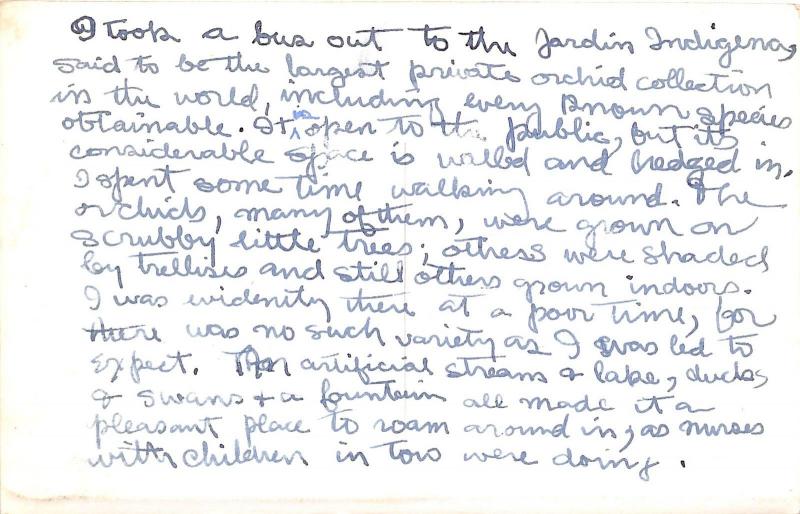 I took a bus out to the Jardin Indigena,
said to be the largest private orchid collection
in the world, including every known species
obtainable. It is open to the public, but its
considerable space is walled and hedged in.
I spent some time walking around. The
orchids, many of them, were grown on
scrubby little trees; others were shaded
by trellises and still others grown indoors.
I was evidently there at a poor time, for
there was no such variety as I was led to
expect. An artificial streams & lake, ducks
& swans & a fountain all made it a
pleasant place to roam around in, as nurses
with children in tow were doing.